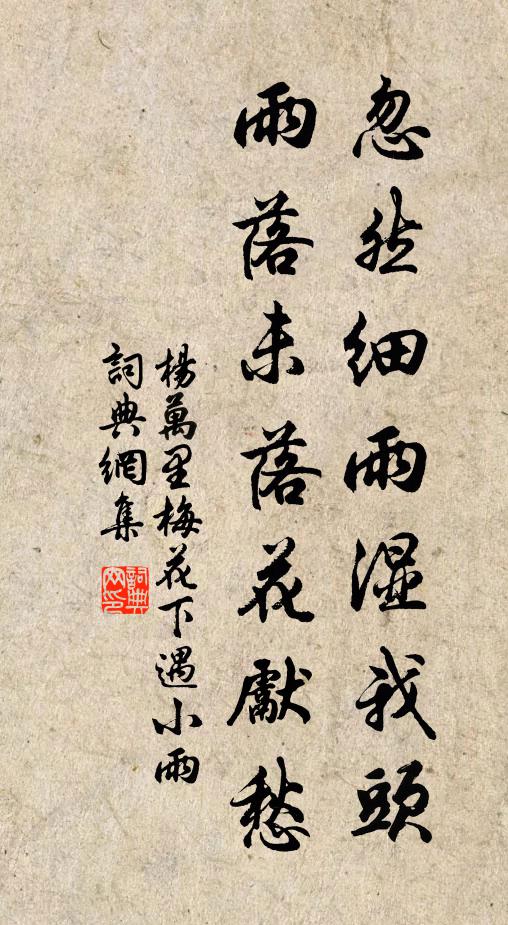 忽然細雨濕我頭
雨落未落花獻愁
楊萬里梅花下遇小雨
詞典網集
詞典网印